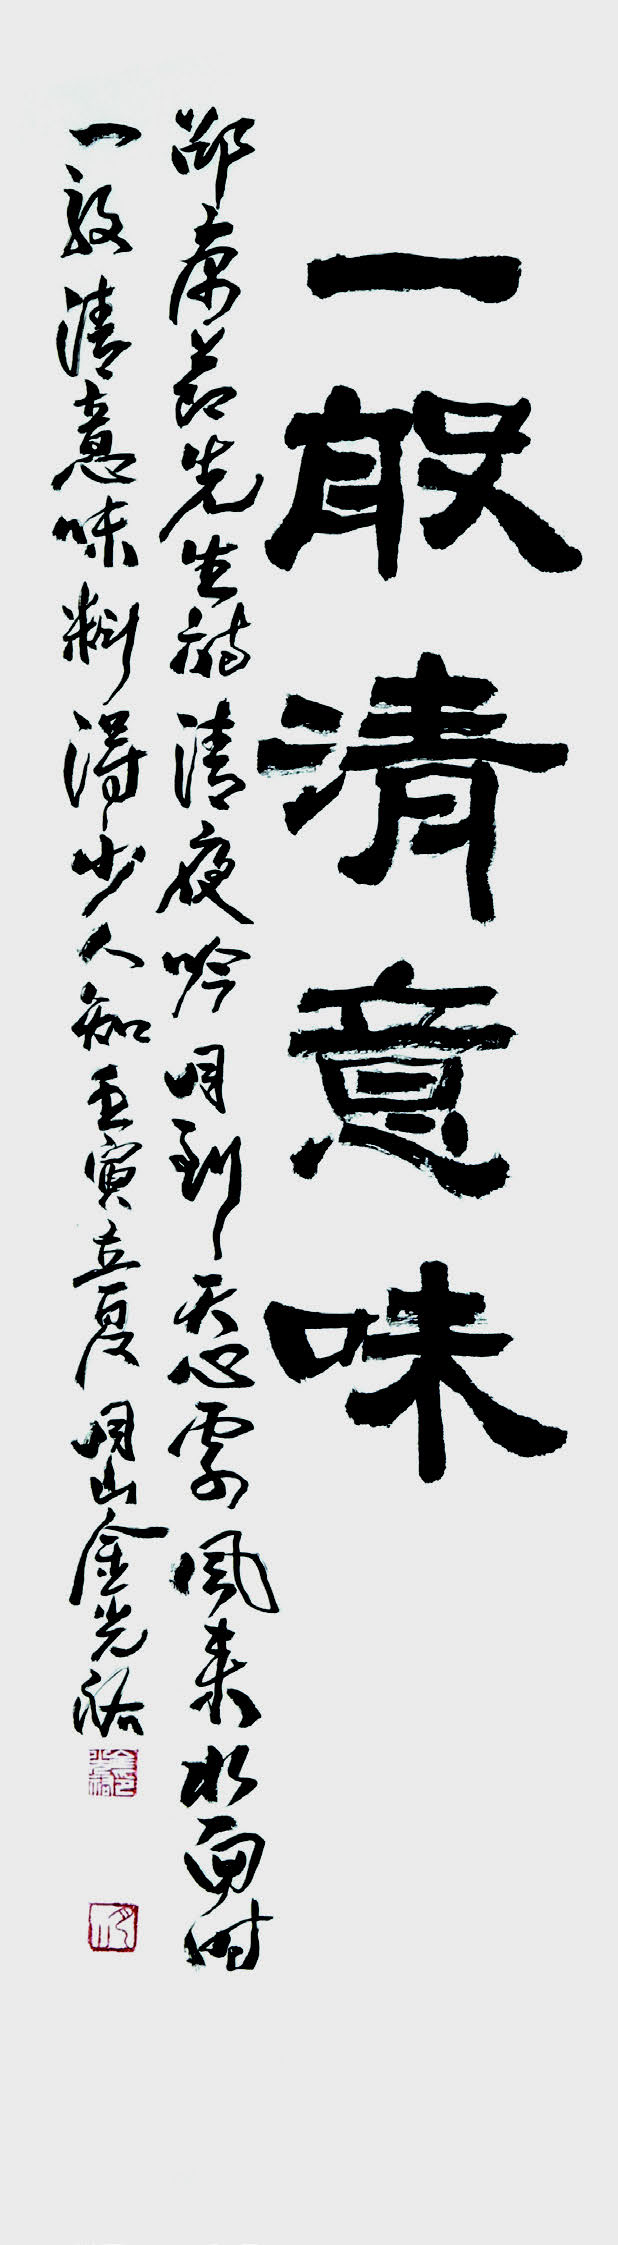 一般清意味
邵康節先生詩清夜吟月到天心處風來水面時
一般清意味料得少人知壬寅立夏月山金光裕